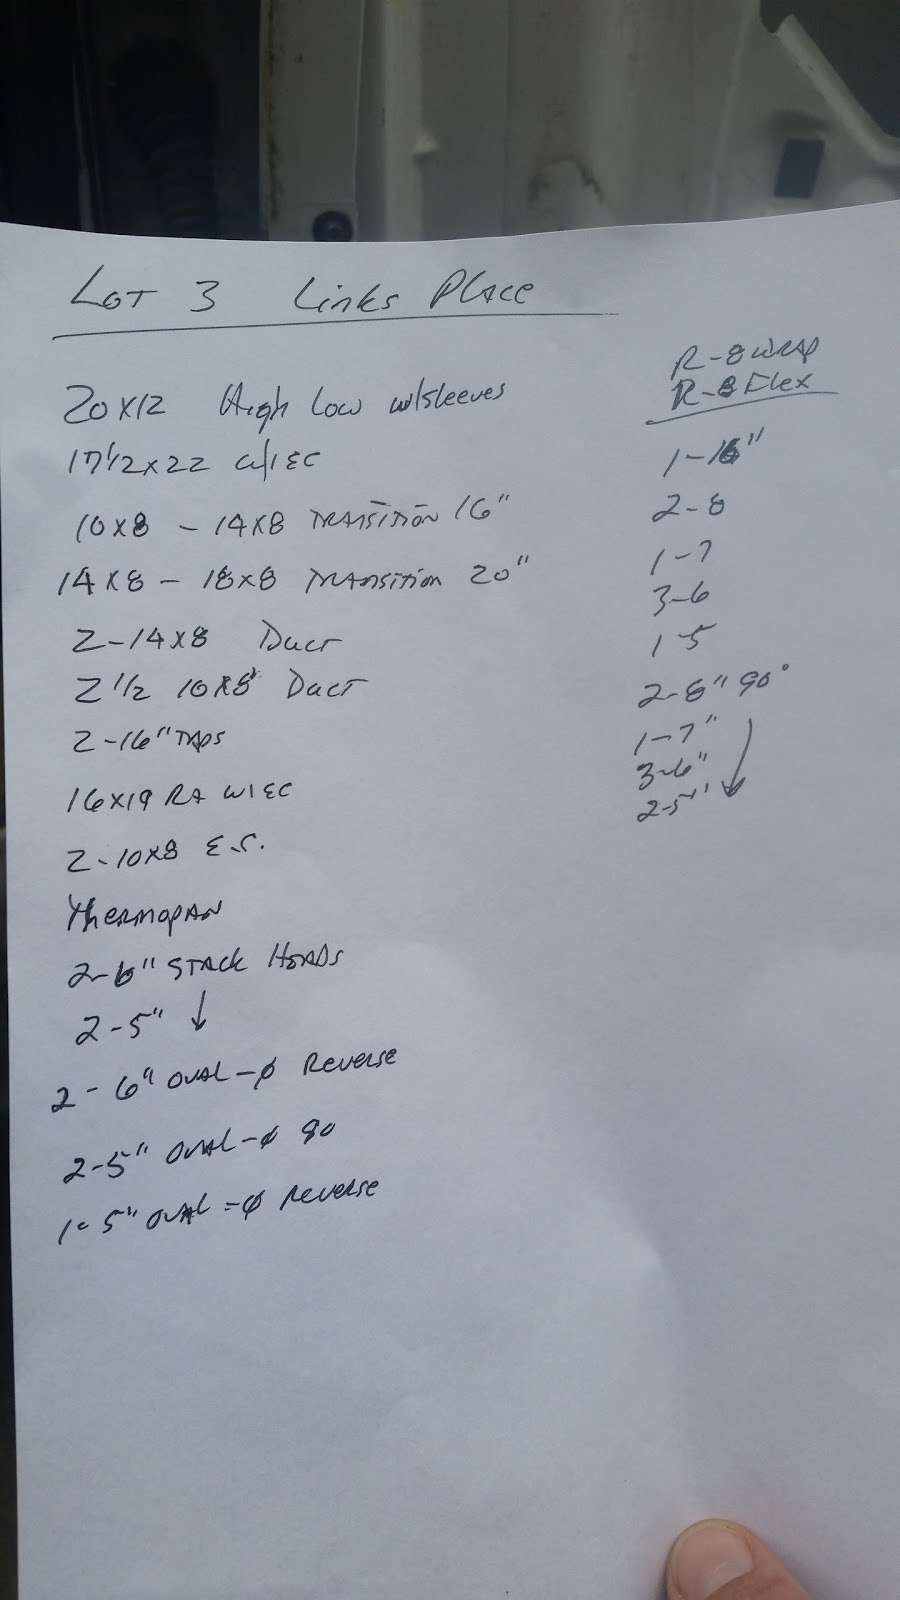 Lot 3 Links Place
20x12 High Low w/sleeves
17 1/2 x 22 w/EC
10x8 - 14x8 Transition 16"
14x8 - 18x8 Transition 20"
2-14x8 Duct
2 1/2 10x8 Duct
2-16" Taps
16x19 RA w/EC
2-10x8 E.C.
Thermopan
2-6" Stack Heads
2-5" ↓
2-6" oval-ø Reverse
2-5" oval-ø 90
1-5" oval-ø Reverse
R-8 wrap
R-8 Flex
1-16"
2-8
1-7
3-6
1-5
2-8" 90°
1-7"
3-6"
2-5" ↓